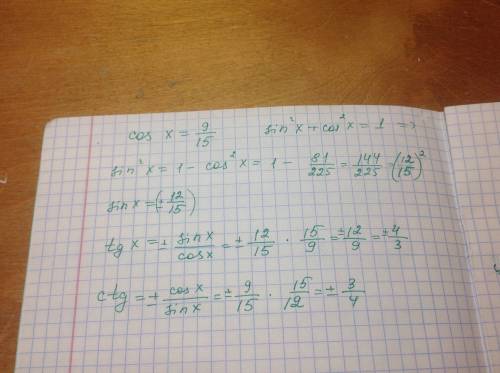 cos x = 9/15    sin²x + cos²x = 1 =>
sin²x = 1 - cos²x = 1 - 81/225 = 144/225 = (12/15)²
sin x = (± 12/15)
tg x = ± sin x/cos x = ± 12/15 · 15/9 = ±12/9 = ±4/3
ctg = ± cos x/sin x = ± 9/15 · 15/12 = ± 3/4